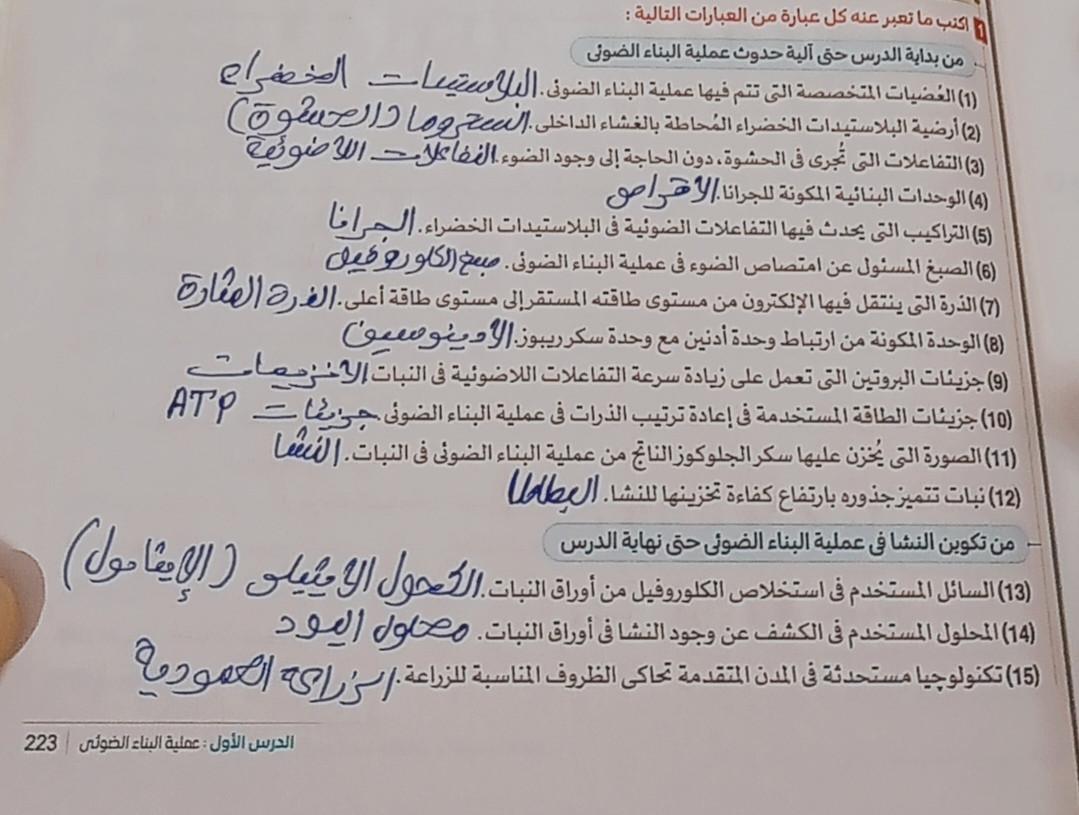 1 اكتب ما تعبر عنه كل عبارة من العبارات التالية :
من بداية الدرس حتى آلية حدوث عملية البناء الضوئى
(1) العُضيات المتخصصة التى تتم فيها عملية البناء الضوئى. البلاستيدات الخضراء
(2) أرضية البلاستيدات الخضراء المُحاطة بالغشاء الداخلى. الستروما (الحشوة)
(3) التفاعلات التى تُجرى فى الحشوة، دون الحاجة إلى وجود الضوء. التفاعلات اللاضوئية
(4) الوحدات البنائية المكونة للجرانا. الأقراص
(5) التراكيب التى يحدث فيها التفاعلات الضوئية فى البلاستيدات الخضراء. الجرانا
(6) الصبغ المسئول عن امتصاص الضوء فى عملية البناء الضوئى. صبغ الكلوروفيل
(7) الذرة التى ينتقل فيها الإلكترون من مستوى طاقته المستقر إلى مستوى طاقة أعلى. الذرة المثارة
(8) الوحدة المكونة من ارتباط وحدة أدنين مع وحدة سكر ريبوز. الأدينوسين
(9) جزيئات البروتين التى تعمل على زيادة سرعة التفاعلات اللاضوئية فى النبات الإنزيمات
(10) جزيئات الطاقة المستخدمة فى إعادة ترتيب الذرات فى عملية البناء الضوئى جزيئات ATP
(11) الصورة التى يُخزن عليها سكر الجلوكوز الناتج من عملية البناء الضوئى فى النبات. النشا
(12) نبات تتميز جذوره بارتفاع كفاءة تخزينها للنشا. البطاطا
من تكوين النشا فى عملية البناء الضوئى حتى نهاية الدرس
(13) السائل المستخدم فى استخلاص الكلوروفيل من أوراق النبات. الكحول الإيثيلى (الإيثانول)
(14) المحلول المستخدم فى الكشف عن وجود النشا فى أوراق النبات. محلول اليود
(15) تكنولوجيا مستحدثة فى المدن المتقدمة تحاكى الظروف المناسبة للزراعة. الزراعة العمودية
الدرس الأول : عملية البناء الضوئى | 223